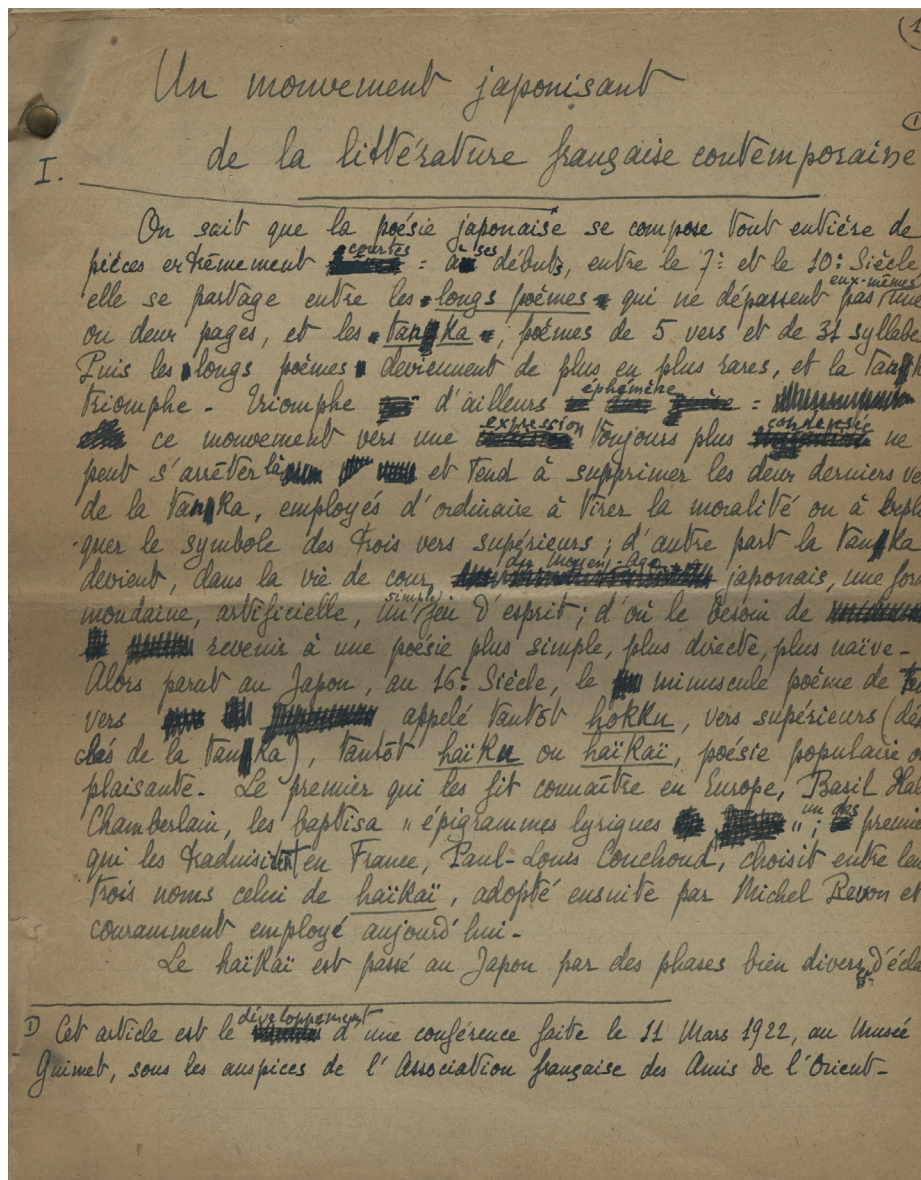 (1
Un mouvement japonisant
(1
de la littérature française contemporaine
I.
On sait que la poésie japonaise se compose tout entière de
pièces extrêmement courtes : à ses débuts, entre le 7e et le 10e Siècle
elle se partage entre les longs poèmes qui ne dépassent pas eux-mêmes une
ou deux pages, et les tanka, poèmes de 5 vers et de 31 syllabe
Puis les longs poèmes deviennent de plus en plus rares, et la tank
triomphe - Triomphe d'ailleurs éphémère :
ce mouvement vers une expression toujours plus condensée ne
peut s'arrêter là et tend à supprimer les deux derniers ve
de la tanka, employés d'ordinaire à tirer la moralité ou à expli
quer le symbole des trois vers supérieurs ; d'autre part la tanka
devient, dans la vie de cour du moyen-âge japonais, une for
mondaine, artificielle, un simple jeu d'esprit ; d'où le besoin de
revenir à une poésie plus simple, plus directe, plus naïve -
Alors parut au Japon, au 16e Siècle, le minuscule poème de
vers appelé tantôt hokku, vers supérieurs (dé
chés de la tanka), tantôt haïku ou haïkaï, poésie populaire o
plaisante - Le premier qui les fit connaître en Europe, Basil Hal
Chamberlain, les baptisa "épigrammes lyriques" ; un des premie
qui les traduisit en France, Paul-Louis Couchoud, choisit entre leu
trois noms celui de haïkaï, adopté ensuite par Michel Revon et
couramment employé aujourd'hui -
Le haïkaï est passé au Japon par des phases bien diverses d'écla
1) Cet article est le développement d'une conférence faite le 11 Mars 1922, au Musée
Guimet, sous les auspices de l'Association française des Amis de l'Orient -